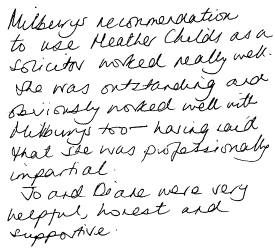 Milburys recommendation
to use Heather Childs as a
solicitor worked really well.
She was outstanding and
obviously worked well with
Milburys too - having said
that she was professionally
impartial.
Jo and Diane were very
helpful, honest and
supportive.